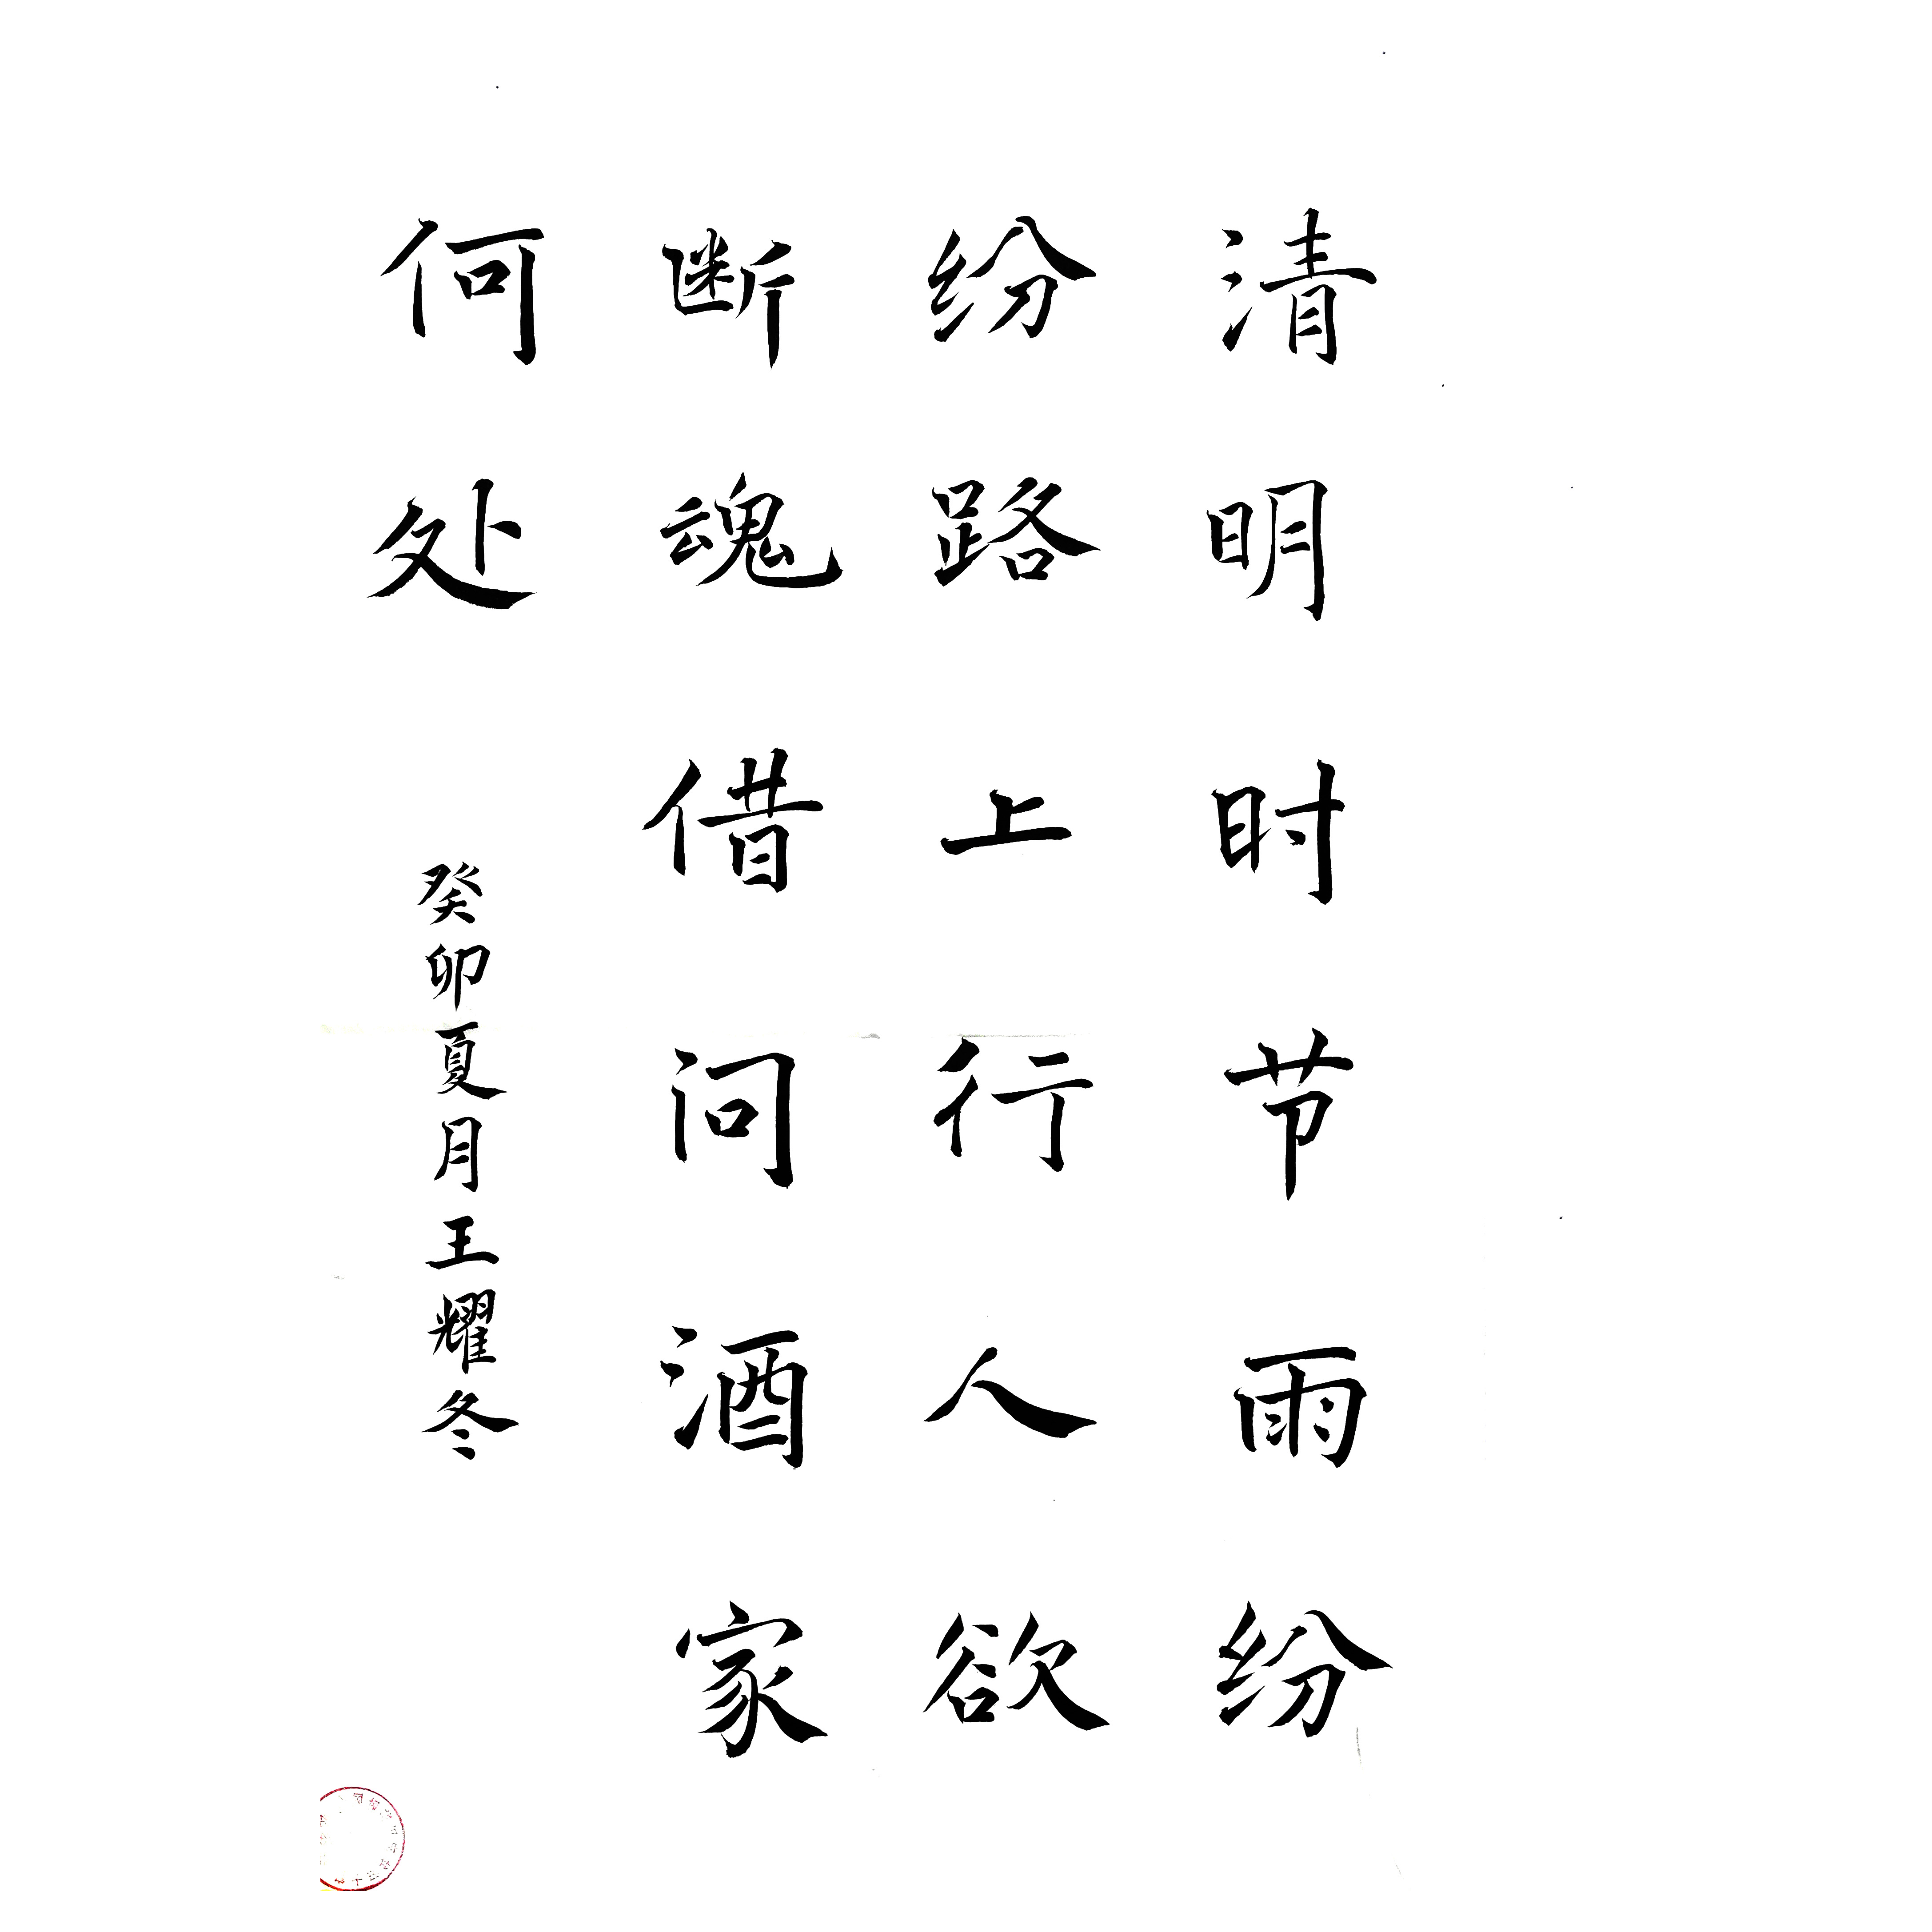 清明时节雨纷
纷路上行人欲
断魂借问酒家
何处
癸卯夏月王耀冬